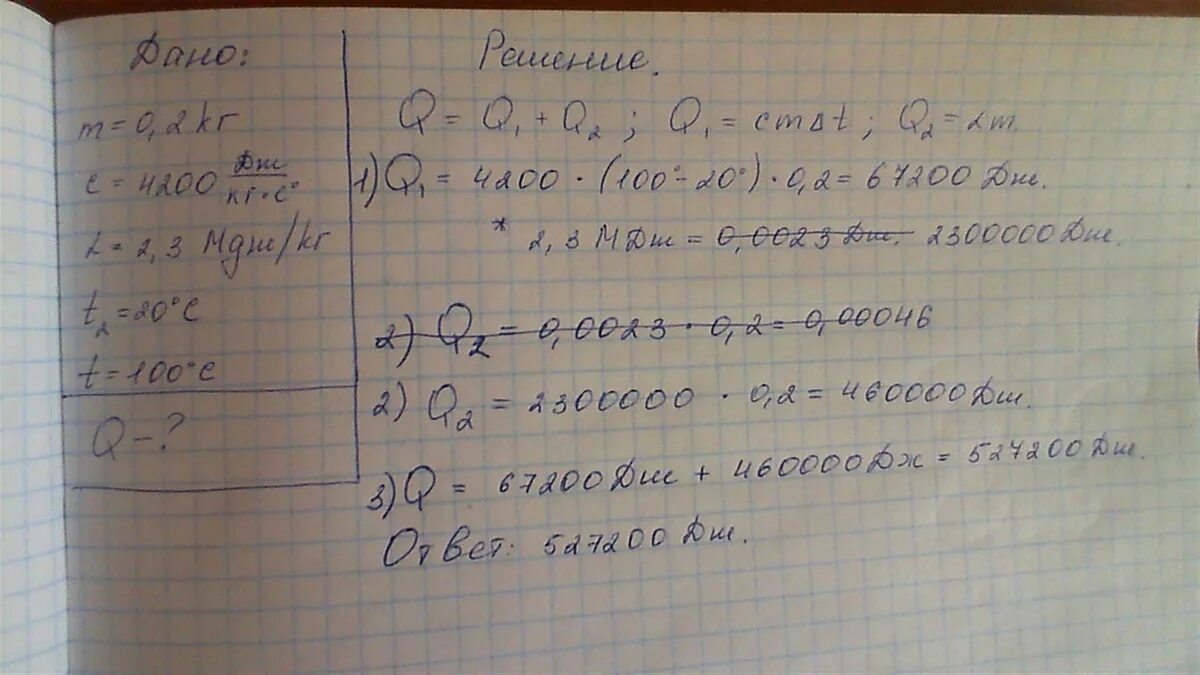 Дано:
m = 0,2 кг
c = 4200 Дж/кг·с°
L = 2,3 Мдж/кг
t₂ = 20°C
t = 100°C
Q - ?
Решение.
Q = Q₁ + Q₂ ; Q₁ = cm∆t ; Q₂ = Lm.
1) Q₁ = 4200 · (100° - 20°) · 0,2 = 67200 Дж.
* 2,3 МДж = 0,0023 Дж. 2300000 Дж.
2) Q₂ = 0,0023 · 0,2 = 0,00046
2) Q₂ = 2300000 · 0,2 = 460000 Дж.
3) Q = 67200 Дж + 460000 Дж = 527200 Дж.
Ответ: 527200 Дж.